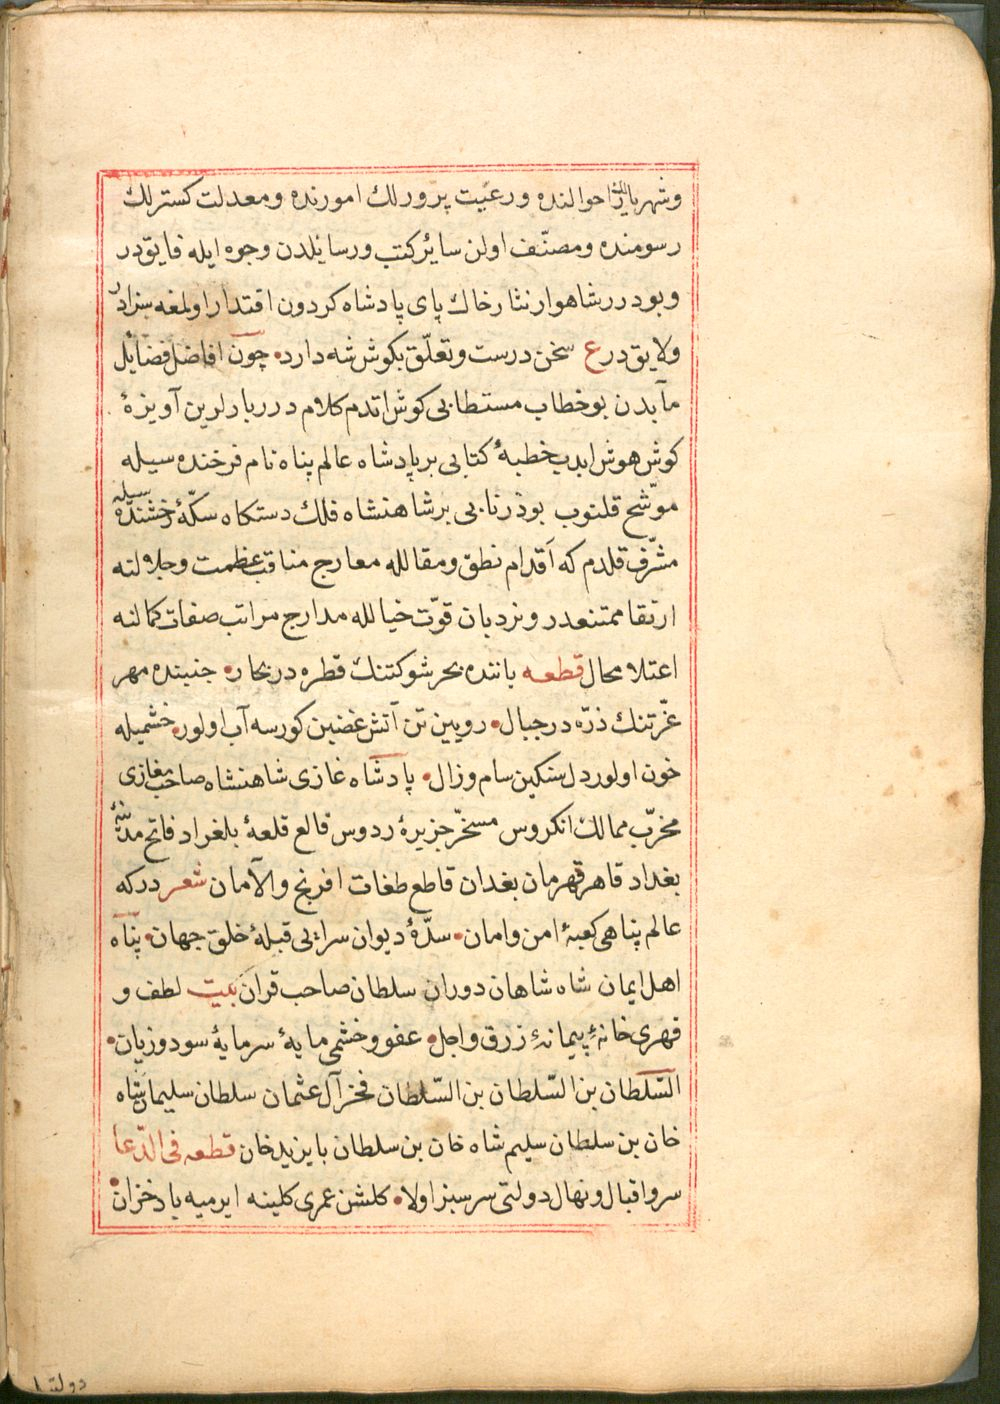 وشهریارلق احوالنده ورعیت پرورلك امورنده ومعدلت كسترلك
رسومنده ومصنّف اولن سایر كتب ورسایلدن وجوه ایله فایق در
وبو درر شاهوار نثار خاك پای پادشاه كردون اقتدار اولمغه سزادر
ولایق در ع سخن درست وتعلّق بكوش شه دارد • چون افاضل فضایل
مآبدن بو خطاب مستطابی كوش اتدم كلام درربارلرین آویزهٔ
كوش هوش ایدب خطبهٔ كتابی بر پادشاه عالم پناه نام فرخنده سیله
موشّح قلنوب بو ذرنابی بر شاهنشاه فلك دستكاه سكّهٔ رخشنده سیله
مشرّف قلدم كه اقدام نطق ومقالله معارج مناقب عظمت وجلالنه
ارتقا ممتنعدر ونردبان قوّت خیالله مدارج مراتب صفات كمالنه
اعتلا محال قطعه باننده بحر شوكتنك قطره در بحار • جنبنده مهر
عزّتنك ذرّه در جبال • رویین تن آتش غضبین كورسه آب اولور • خشمیله
خون اولور دل سنكین سام وزال • پادشاه غازی شاهنشاه صاحب مغازی
مخرّب ممالك انكروس مسخّر جزیرهٔ ردوس قالع قلعهٔ بلغراد فاتح مدینهٔ
بغداد قاهر قهرمان بغدان قاطع طغات افرنج والآمان شعر دركه
عالم پناهی كعبهٔ امن وامان • سدّهٔ دیوان سرایی قبلهٔ خلق جهان • پناه
اهل ایمان شاه شاهان دوران سلطان صاحب قران بیت لطف و
قهری خانهٔ پیمانهٔ رزق واجل • عفو وخشمی مایهٔ سرمایهٔ سود وزیان •
السّلطان بن السّلطان بن السّلطان فخر آل عثمان سلطان سلیمان شاه
خان بن سلطان سلیم شاه خان بن سلطان بایزید خان قطعه فی الدّعا
سرو اقبال ونهال دولتی سرسبز اولا • كلشن عمری كلینه ایرمیه باد خزان •